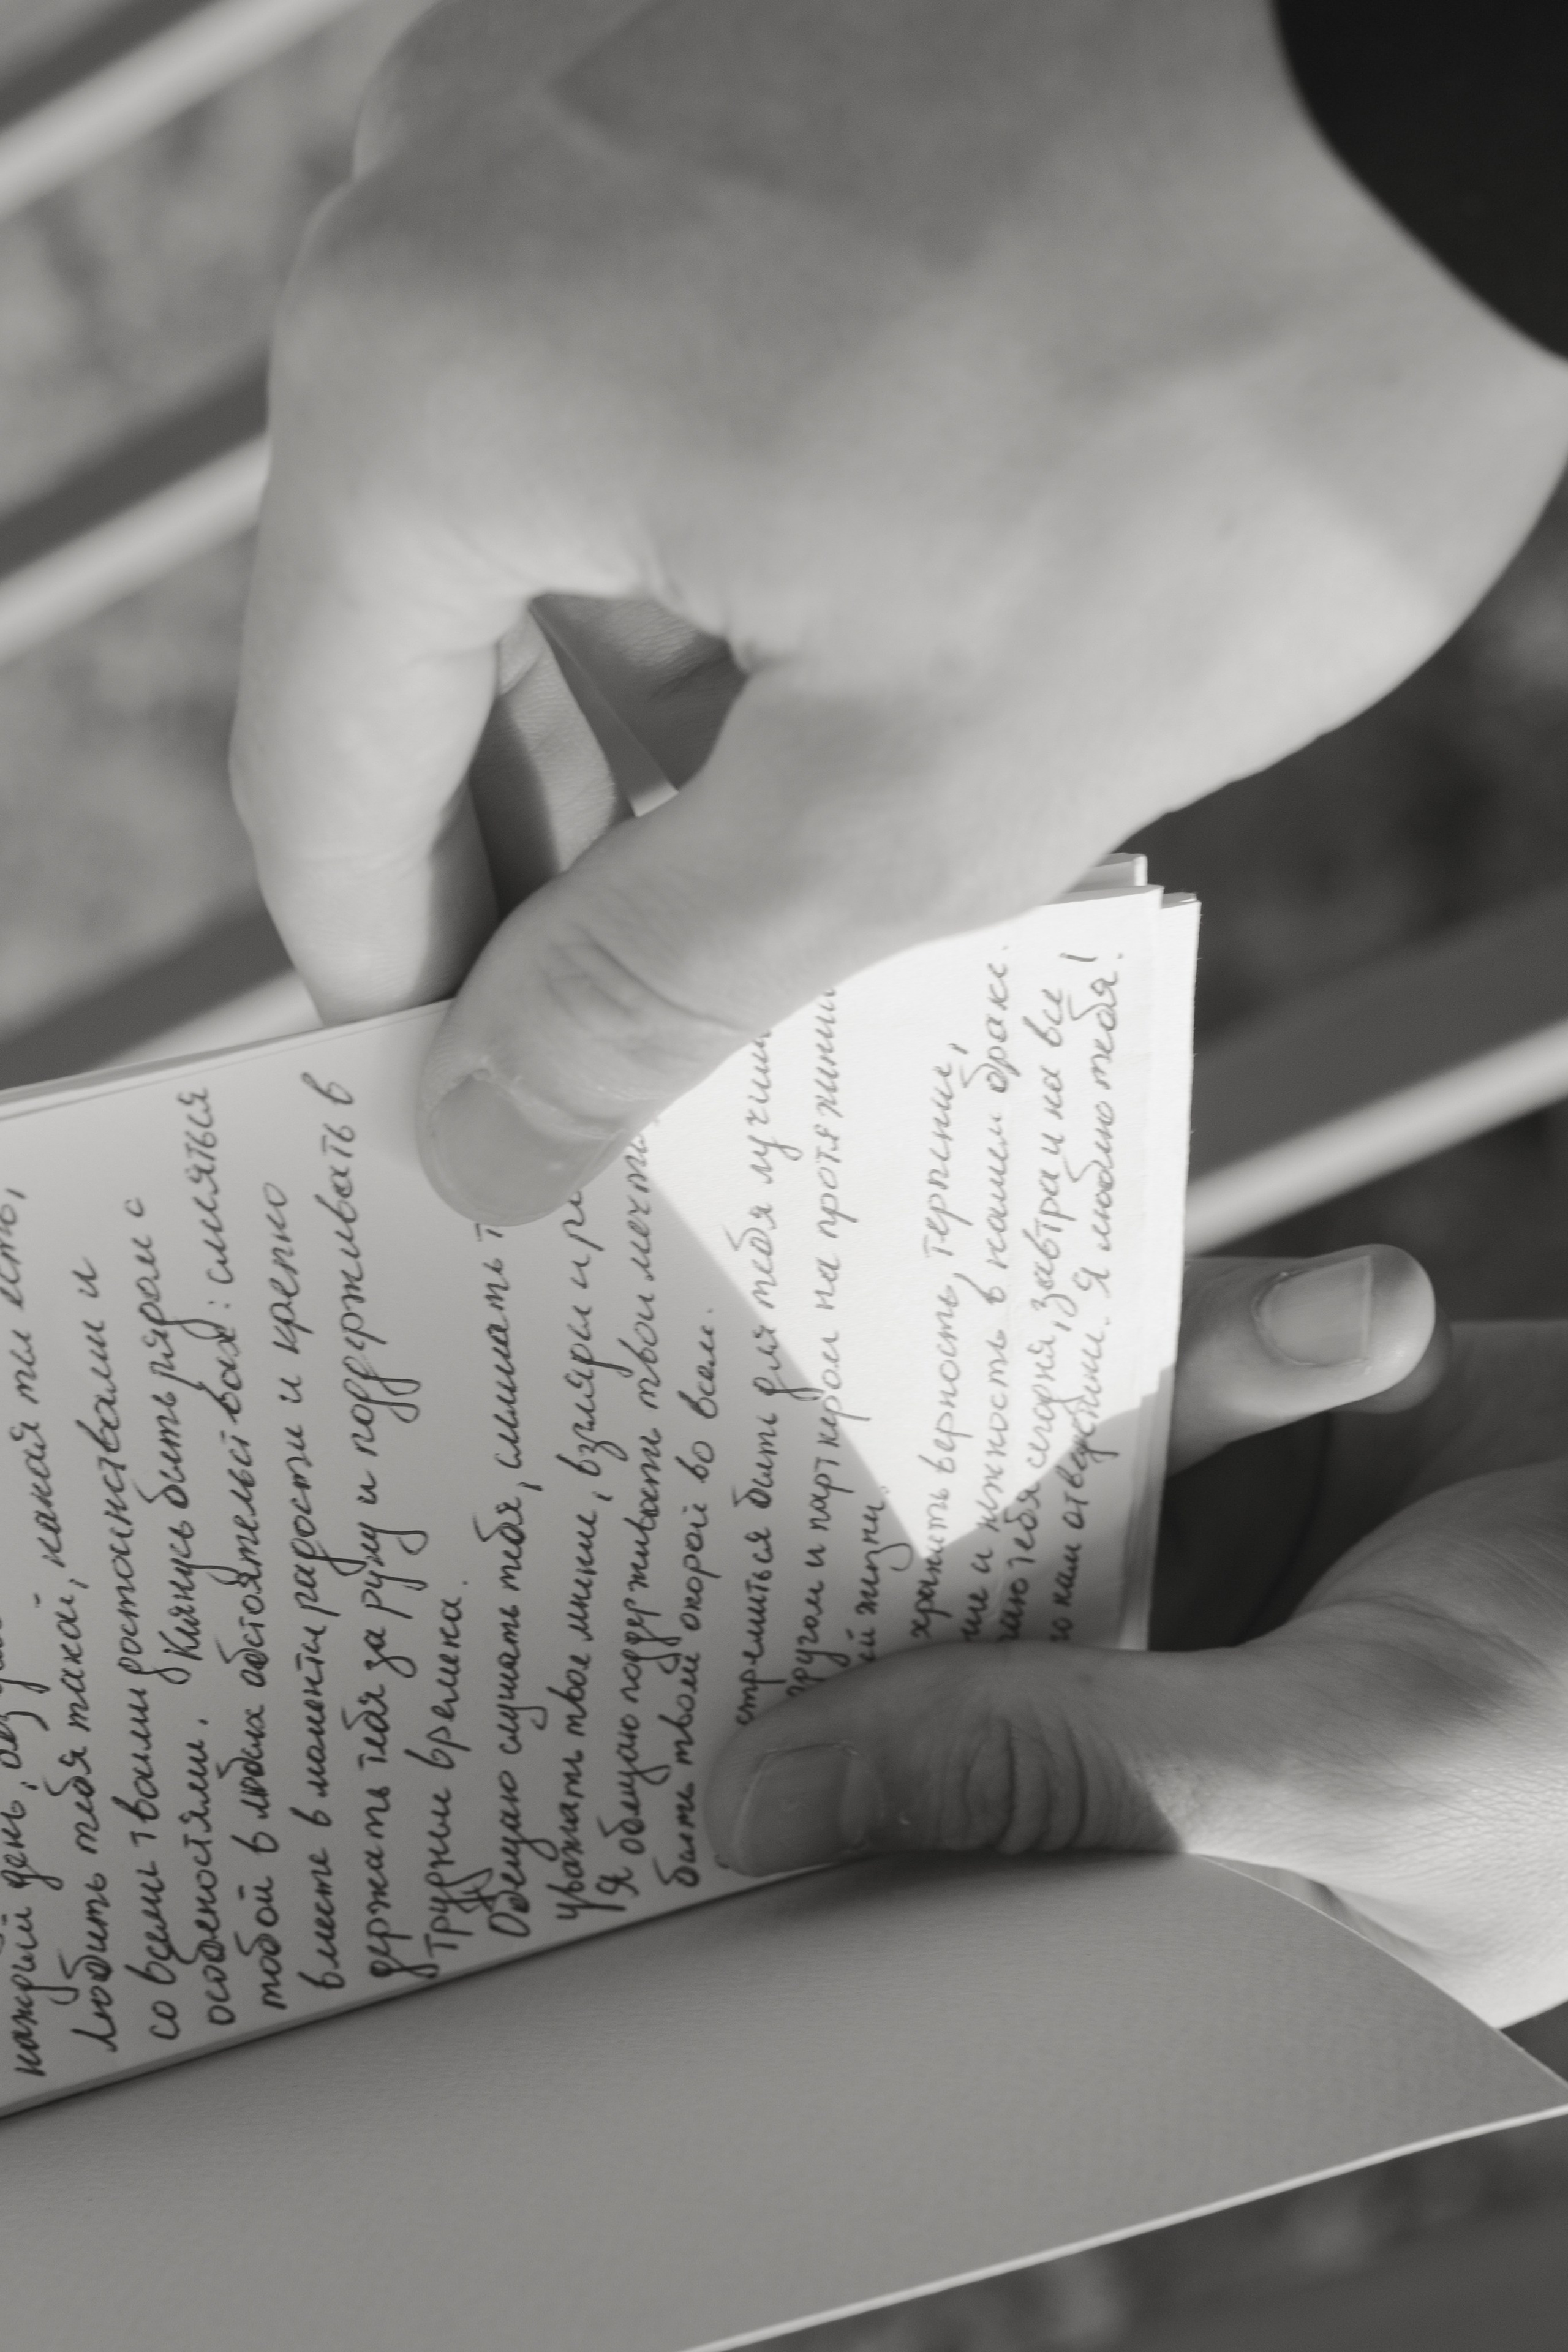 каждый день,
Любить тебя такой, какая ты есть,
со всеми твоими достоинствами и
особенностями. Клянусь быть рядом с
тобой в любых обстоятельствах: смеяться
вместе в моменты радости и крепко
держать тебя за руку и поддерживать в
трудные времена.
Обещаю слушать тебя, слышать т
уважать твое мнение, взгляды и
Я обещаю поддерживать твои мечты
быть твоей опорой во всем.
стремиться быть для тебя лучши
другом и партнером на протяжении
ей жизни.
хранить верность, терпение,
ние и нежность в нашем браке.
маю тебя сегодня, завтра и на все
о нам отведены. Я люблю тебя!